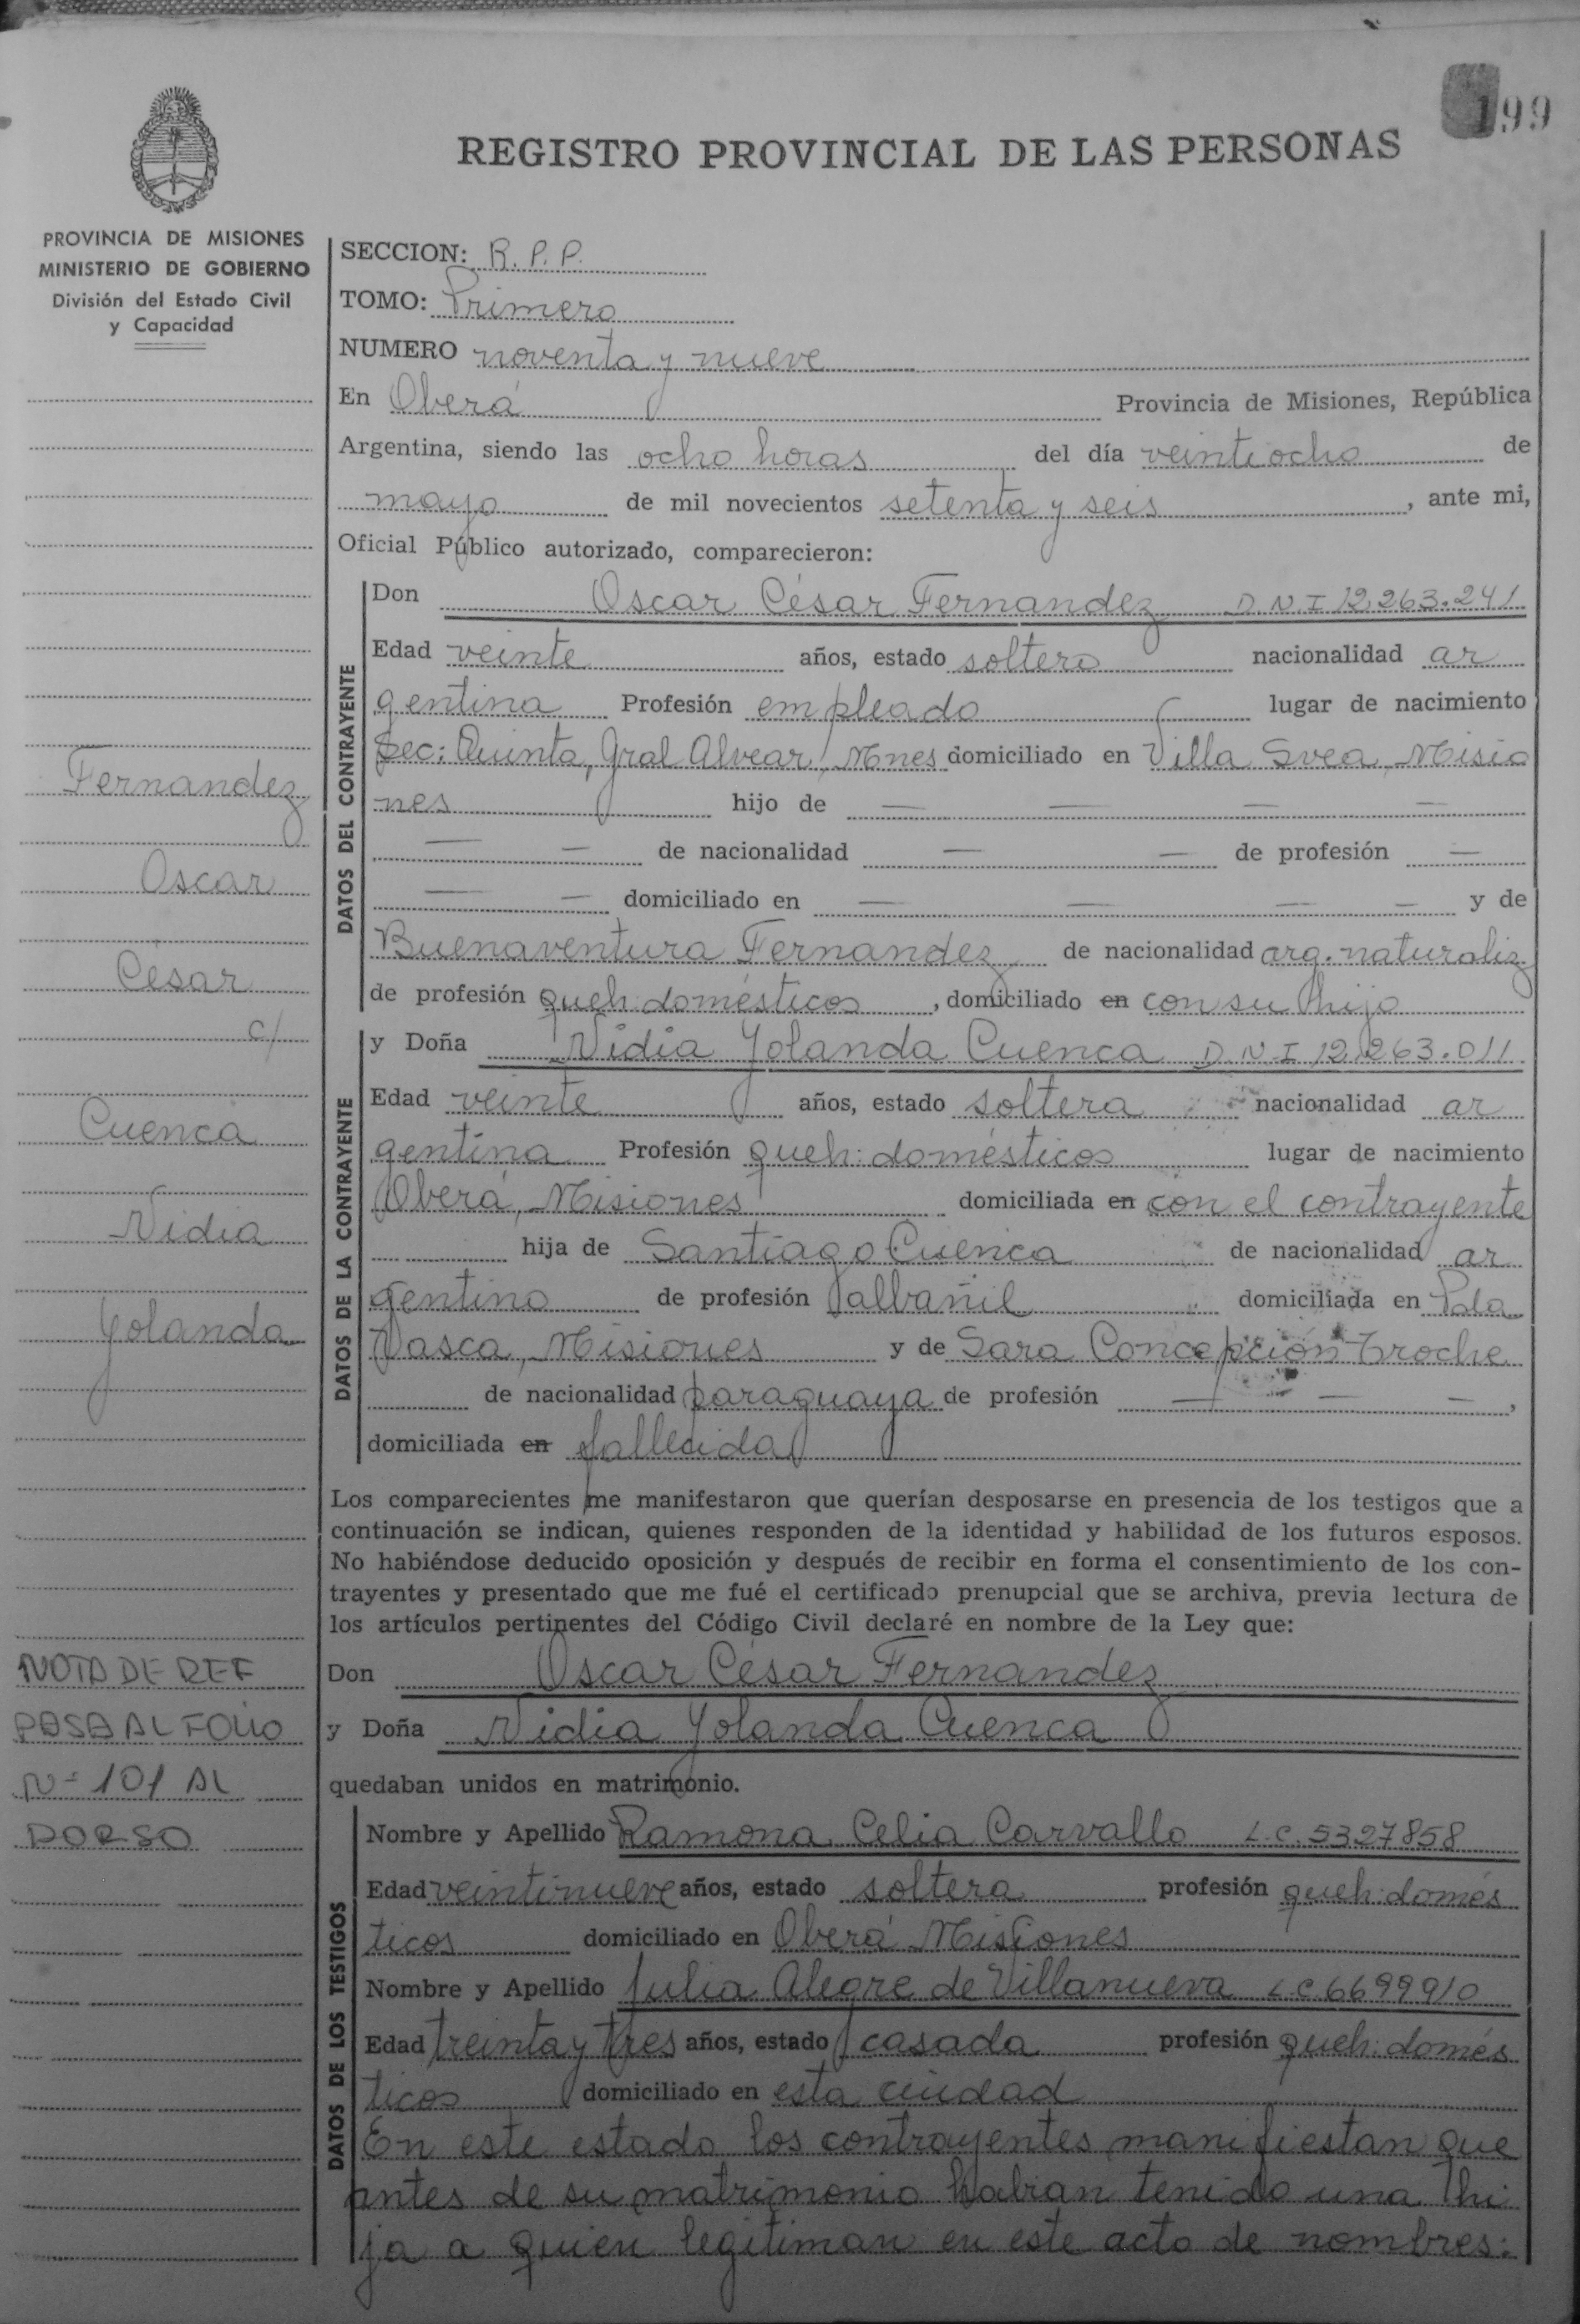 199
REGISTRO PROVINCIAL DE LAS PERSONAS
PROVINCIA DE MISIONES
MINISTERIO DE GOBIERNO
División del Estado Civil
y Capacidad
SECCION: R.P.P.
TOMO: Primero
NUMERO noventa y nueve
En Oberá Provincia de Misiones, República
Argentina, siendo las ocho horas del día veintiocho de
mayo de mil novecientos setenta y seis, ante mi,
Oficial Público autorizado, comparecieron:
DATOS DEL CONTRAYENTE
Don Oscar César Fernandez D.N.I 12.263.241
Edad veinte años, estado soltero nacionalidad ar
gentina Profesión empleado lugar de nacimiento
Sec: Quinta, Gral Alvear, Mnes domiciliado en Villa Svea, Misio
nes hijo de — — — —
— — de nacionalidad — — de profesión —
— — domiciliado en — — — — y de
Buenaventura Fernandez de nacionalidad arg. naturaliz
de profesión queh: domésticos, domiciliado en con su hijo
DATOS DE LA CONTRAYENTE
y Doña Nidia Yolanda Cuenca D.N.I 12.263.011
Edad veinte años, estado soltera nacionalidad ar
gentina Profesión queh: domésticos lugar de nacimiento
Oberá, Misiones domiciliada en con el contrayente
hija de Santiago Cuenca de nacionalidad ar
gentino de profesión albañil domiciliada en Pola
Vasca, Misiones y de Sara Concepción Troche
de nacionalidad paraguaya de profesión — — —,
domiciliada en fallecida
Los comparecientes me manifestaron que querían desposarse en presencia de los testigos que a
continuación se indican, quienes responden de la identidad y habilidad de los futuros esposos.
No habiéndose deducido oposición y después de recibir en forma el consentimiento de los con-
trayentes y presentado que me fué el certificado prenupcial que se archiva, previa lectura de
los artículos pertinentes del Código Civil declaré en nombre de la Ley que:
Don Oscar César Fernandez
y Doña Nidia Yolanda Cuenca
quedaban unidos en matrimonio.
DATOS DE LOS TESTIGOS
Nombre y Apellido Ramona Celia Carvallo L.C. 5327858
Edad veintinueve años, estado soltera profesión queh: domés
ticos domiciliado en Oberá Misiones
Nombre y Apellido Julia Alegre de Villanueva L.C 6699910
Edad treinta y tres años, estado casada profesión queh: domés
ticos domiciliado en esta ciudad
En este estado los contrayentes manifiestan que
antes de su matrimonio habian tenido una hi
ja a quien legitiman en este acto de nombres:
Fernandez
Oscar
César
c/
Cuenca
Nidia
Yolanda
NOTA DE REF
PASA AL FOLIO
Nº 101 AL
DORSO